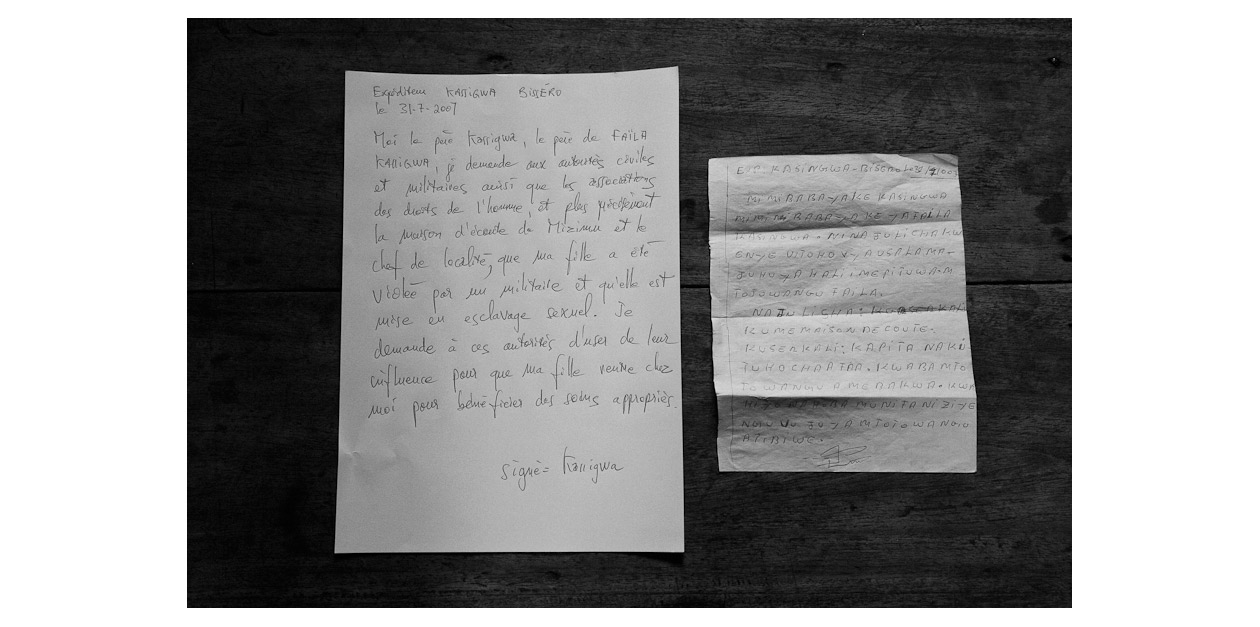 Expéditeur KASIGWA BISSÉRO
le 31-7-2007
Moi le père Kassigwa, le père de FAÏLA
KASIGWA, je demande aux autorités civiles
et militaires ainsi que les associations
des droits de l'homme, et plus précisément
la maison d'écoute de Mizimu et le
chef de localité, que ma fille a été
violée par un militaire et qu'elle est
mise en esclavage sexuel. Je
demande à ces autorités d'user de leur
influence pour que ma fille vienne chez
moi pour bénéficier des soins appropriés.
signé= Kassigwa
EXP. KASINGWA-BISERO
MIMI BABA YAKE KASINGWA
MIMI BABA YAKE YA FAILA
KASINGWA. NINAJULICHA KW
ENYE VITOHOX YA USALAMA-
JUHO YA HALI IMEPITUWA.M
TOTOWANGU FAILA.
NAJULISHA:
KUMEMAISONDECOUTE.
KUSERKALI: KAPITA NAKI
KWABAMTO
TOWANGU AMEBAKWA. KWA
MUNIFANIZIYE
NGUVU JU YA MTOTOWANGO
ATIBIWE.